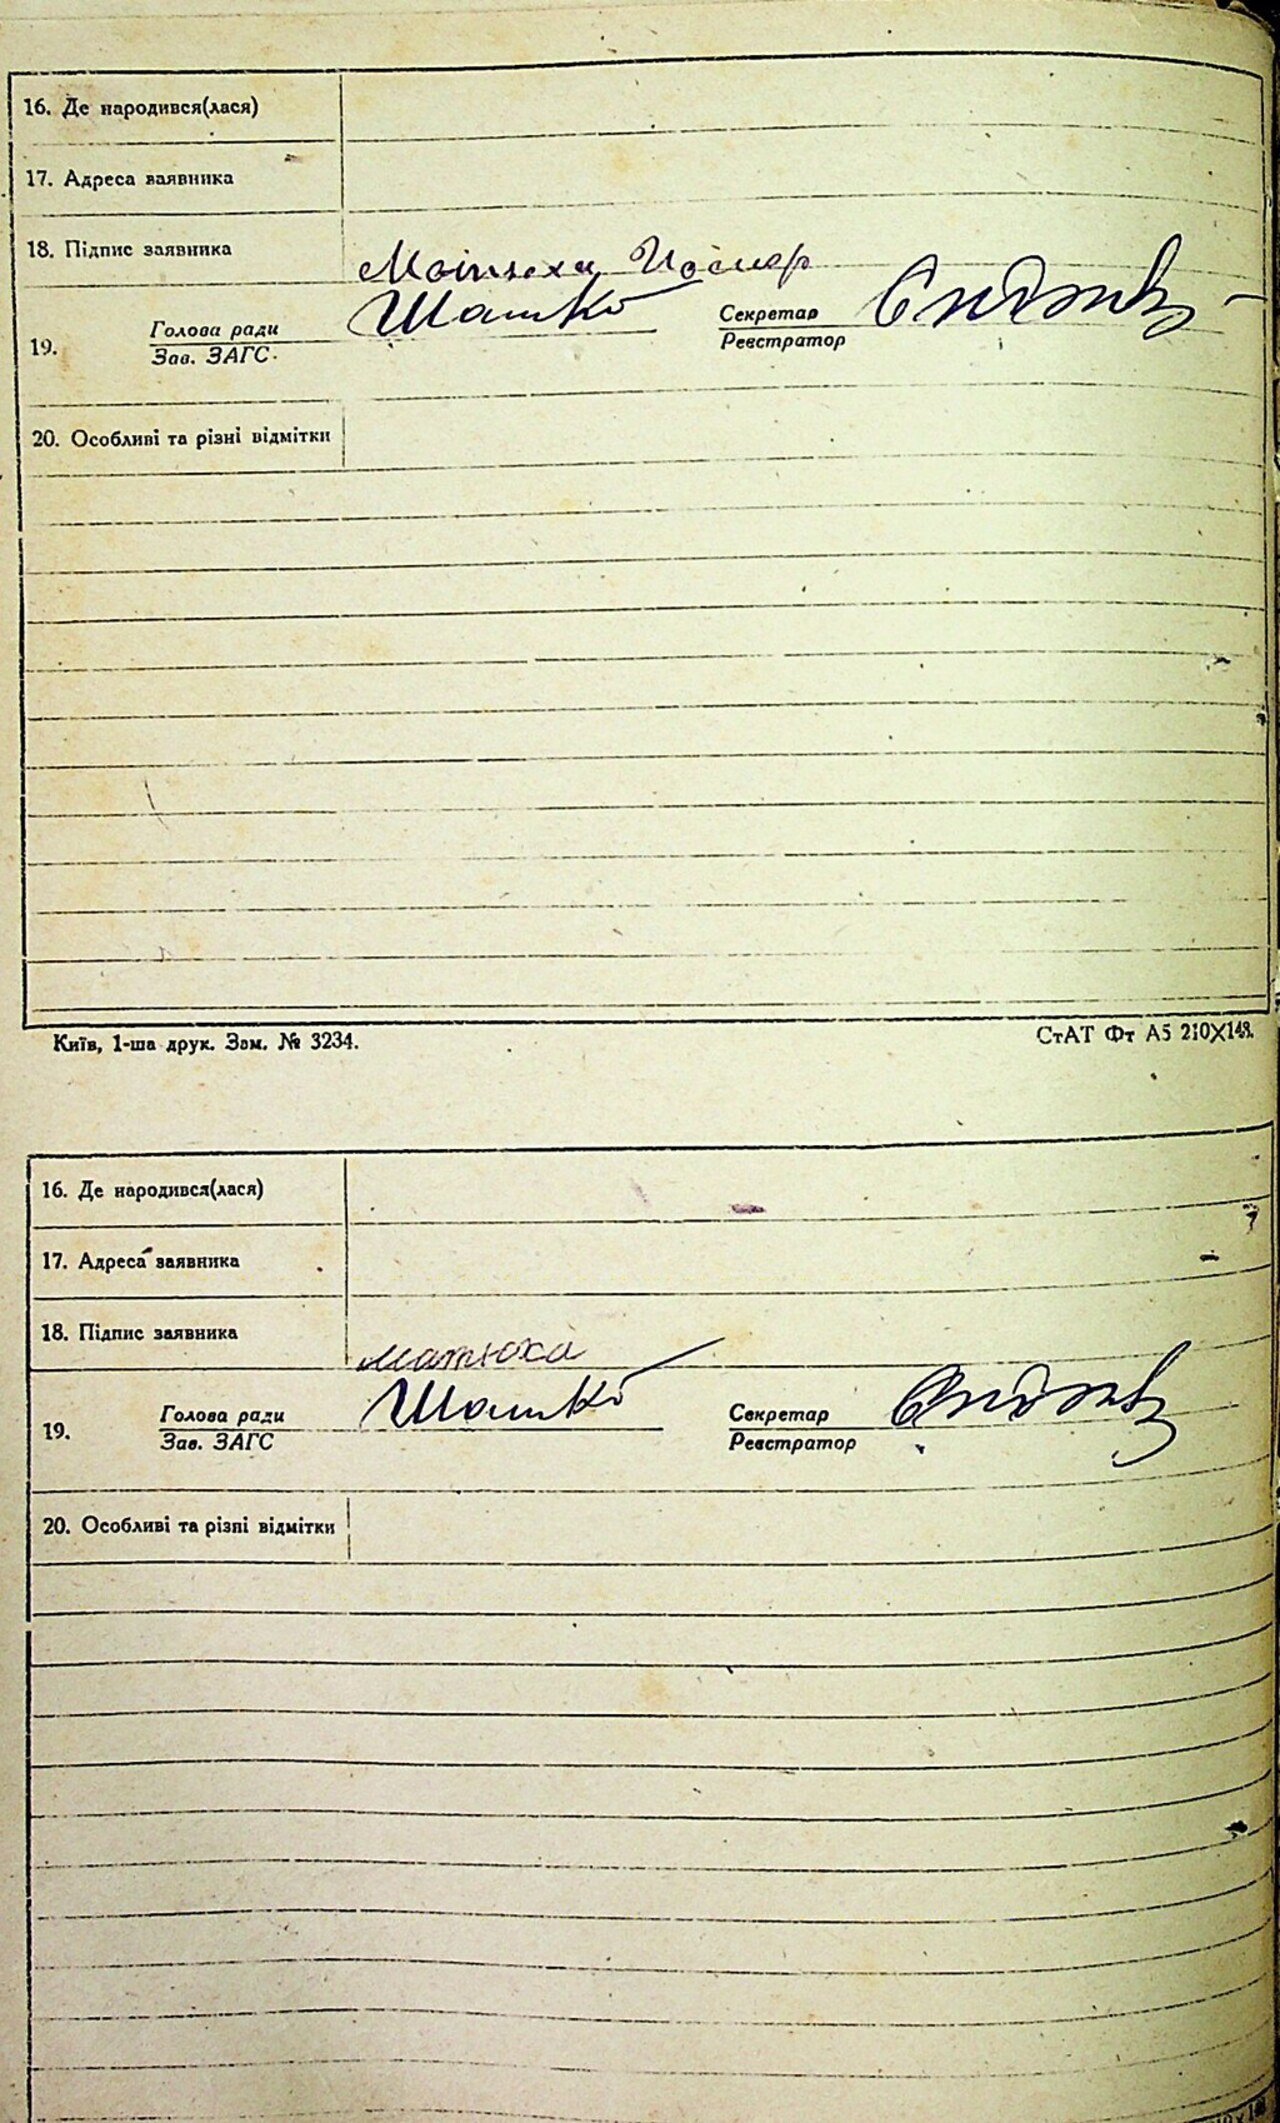 16. Де народився(лася)
17. Адреса заявника
18. Підпис заявника
Голова ради Шашко Секретар
19. Зав. ЗАГС. Реєстратор
20. Особливі та різні відмітки
Київ, 1-ша друк. Зам. № 3234. СтАТ Фт А5 210X148.
16. Де народився(лася)
17. Адреса заявника
18. Підпис заявника матюха
Голова ради Шашко Секретар
19. Зав. ЗАГС Реєстратор
20. Особливі та різні відмітки